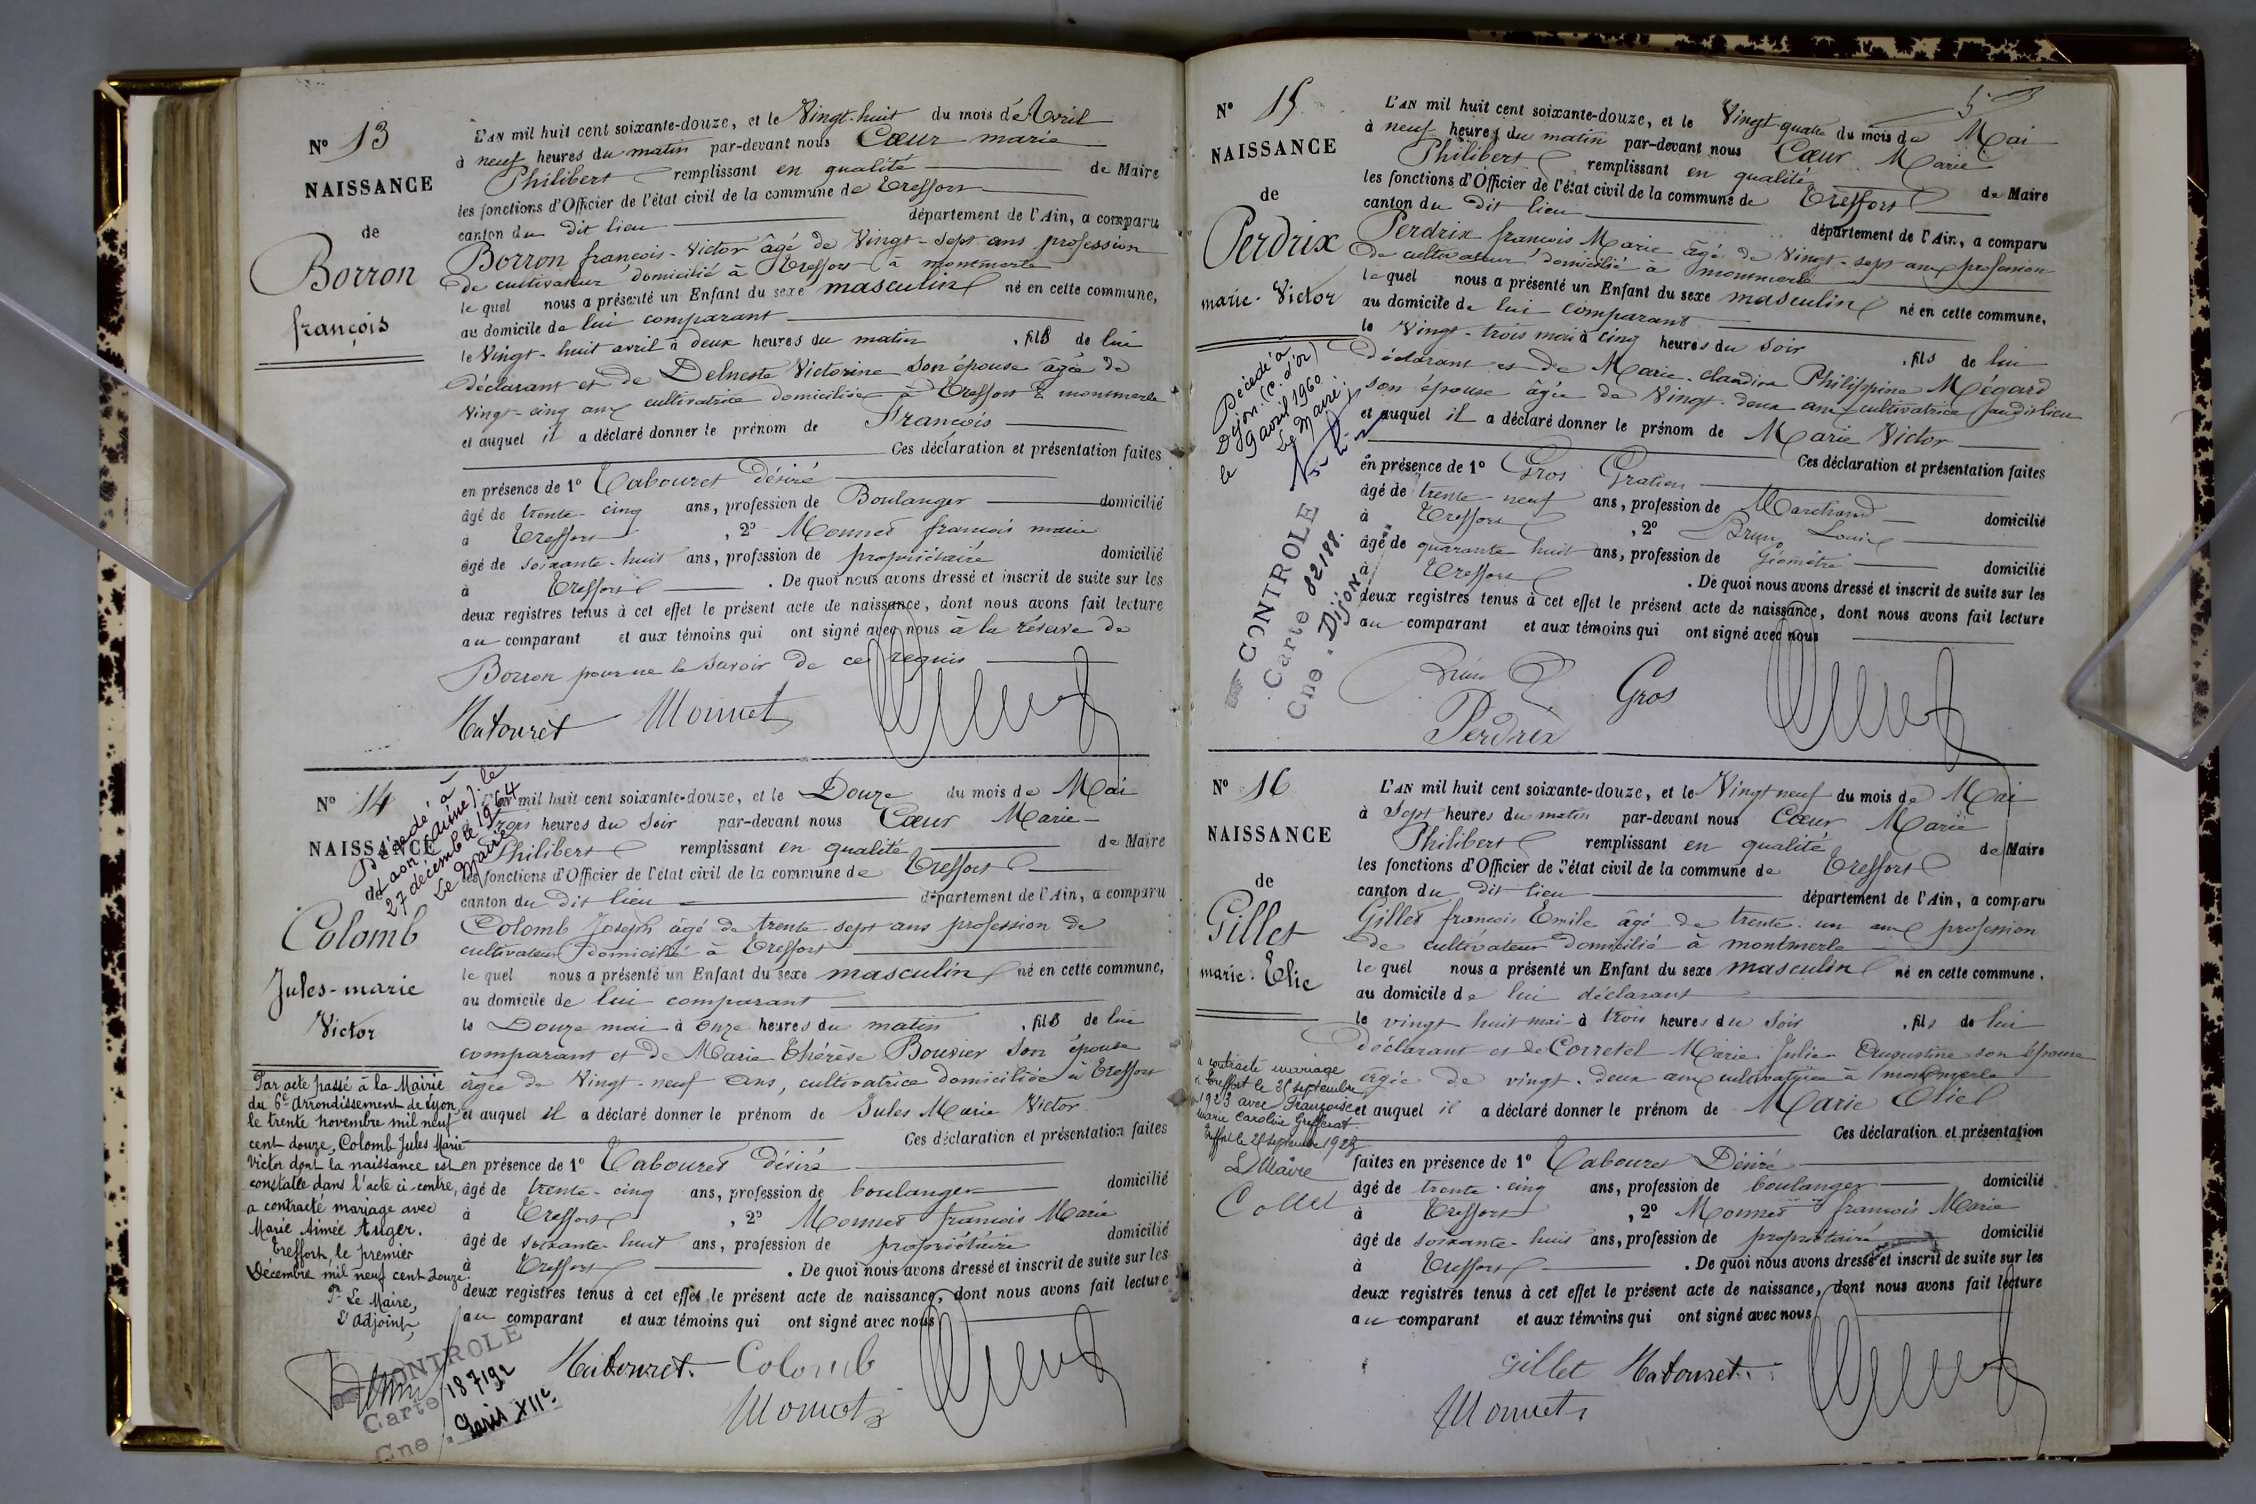 N° 13
NAISSANCE
de
Borron
françois
L'AN mil huit cent soixante-douze, et le Vingt-huit du mois de Avril
à neuf heures du matin par-devant nous Cœur marie
Philibert remplissant en qualité de Maire
les fonctions d'Officier de l'état civil de la commune de Treffort
canton du dit lieu département de l'Ain, a comparu
Borron françois-Victor âgé de Vingt-sept ans profession
de cultivateur domicilié à Treffort à montmerle
le quel nous a présenté un Enfant du sexe masculin né en cette commune,
au domicile de lui comparant
le Vingt-huit avril à deux heures du matin , fils de lui
déclarant et de Victorine son épouse âgée de
Vingt-cinq ans cultivatrice domiciliée à Treffort à montmerle
et auquel il a déclaré donner le prénom de François
Ces déclaration et présentation faites
en présence de 1° Tabouret Désiré
âgé de trente-cinq ans, profession de Boulanger domicilié
à Treffort , 2° Monnet françois marie
âgé de soixante-huit ans, profession de propriétaire domicilié
à Treffort . De quoi nous avons dressé et inscrit de suite sur les
deux registres tenus à cet effet le présent acte de naissance, dont nous avons fait lecture
au comparant et aux témoins qui ont signé avec nous à la réserve de
Borron pour ne le savoir de ce requis
Monnet
N° 14
NAISSANCE
de
Décédé à
Laon (Aisne). le
27 décembre 1964
Le Maire
Colomb
Jules-marie
Victor
L'AN mil huit cent soixante-douze, et le Douze du mois de Mai
à Trois heures du soir par-devant nous Cœur Marie
Philibert remplissant en qualité de Maire
les fonctions d'Officier de l'état civil de la commune de Treffort
canton du dit lieu département de l'Ain, a comparu
Colomb Joseph âgé de trente-sept ans profession de
cultivateur domicilié à Treffort
le quel nous a présenté un Enfant du sexe masculin né en cette commune,
au domicile de lui comparant
le Douze mai à onze heures du matin , fils de lui
comparant et de Marie Thérèse Bouvier son épouse
âgée de Vingt-neuf ans, cultivatrice domiciliée à Treffort
et auquel il a déclaré donner le prénom de Jules Marie Victor
Ces déclaration et présentation faites
en présence de 1° Tabouret Désiré
âgé de trente-cinq ans, profession de boulanger domicilié
à Treffort , 2° Monnet françois Marie
âgé de soixante-huit ans, profession de propriétaire domicilié
à Treffort . De quoi nous avons dressé et inscrit de suite sur les
deux registres tenus à cet effet le présent acte de naissance, dont nous avons fait lecture
au comparant et aux témoins qui ont signé avec nous
Colomb
Par acte passé à la Mairie
du 6e Arrondissement de Lyon,
le trente novembre mil neuf
cent douze, Colomb Jules Marie
Victor dont la naissance est
constatée dans l'acte ci-contre,
a contracté mariage avec
Marie Aimée Auger.
Treffort, le premier
Décembre mil neuf cent douze.
Pr Le Maire,
L'adjoint,
CONTROLE
Carte 187192
Cne. Paris XIIe
N° 15
NAISSANCE
de
Perdrix
marie-Victor
5
L'AN mil huit cent soixante-douze, et le Vingt quatre du mois de Mai
à neuf heures du matin par-devant nous Cœur Marie
Philibert remplissant en qualité de Maire
les fonctions d'Officier de l'état civil de la commune de Treffort
canton du dit lieu département de l'Ain, a comparu
Perdrix françois Marie âgé de Vingt-sept ans profession
de cultivateur domicilié à montmerle
le quel nous a présenté un Enfant du sexe masculin né en cette commune,
au domicile de lui comparant
le Vingt-trois mai à cinq heures du soir , fils de lui
déclarant et de Marie-claudine Philippine Mégard
son épouse âgée de Vingt-deux ans cultivatrice audit lieu
et auquel il a déclaré donner le prénom de Marie Victor
Ces déclaration et présentation faites
en présence de 1° Gros Gratien
âgé de trente-neuf ans, profession de Marchand domicilié
à Treffort , 2° Brun Louis
âgé de quarante huit ans, profession de Géomètre domicilié
à Treffort . De quoi nous avons dressé et inscrit de suite sur les
deux registres tenus à cet effet le présent acte de naissance, dont nous avons fait lecture
au comparant et aux témoins qui ont signé avec nous
Décédé à
Dijon (C. d'or)
le 9 avril 1960
Le Maire:
CONTROLE
Carte 82188.
Cne. Dijon
Brun
Gros
Perdrix
N° 16
NAISSANCE
de
Gillet
marie-Elie
L'AN mil huit cent soixante-douze, et le Vingt neuf du mois de Mai
à Sept heures du matin par-devant nous Cœur Marie
Philibert remplissant en qualité de Maire
les fonctions d'Officier de l'état civil de la commune de Treffort
canton du dit lieu département de l'Ain, a comparu
Gillet françois Emile âgé de trente-un ans profession
de cultivateur domicilié à montmerle
le quel nous a présenté un Enfant du sexe masculin né en cette commune,
au domicile de lui déclarant
le vingt huit mai à trois heures du soir , fils de lui
déclarant et de Corretel Marie Julie Augustine son épouse
âgée de vingt-deux ans cultivatrice à montmerle
et auquel il a déclaré donner le prénom de Marie Elie
Ces déclaration et présentation
faites en présence de 1° Tabouret Désiré
âgé de trente-cinq ans, profession de boulanger domicilié
à Treffort , 2° Monnet françois Marie
âgé de soixante-huit ans, profession de propriétaire domicilié
à Treffort . De quoi nous avons dressé et inscrit de suite sur les
deux registres tenus à cet effet le présent acte de naissance, dont nous avons fait lecture
au comparant et aux témoins qui ont signé avec nous
a contracté mariage
à Treffort le septembre
1923 avec Françoise
Marie Caroline
Treffort le septembre 1923
Le Maire
Collet
Gillet
Monnet